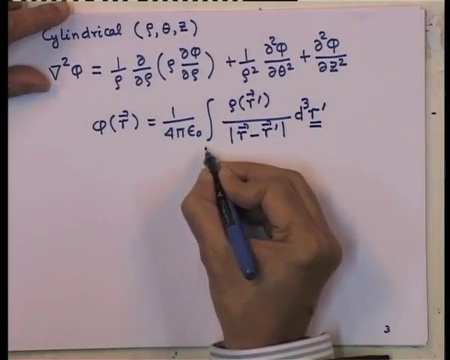 Cylindrical (ρ, θ, z)
∇²φ = 1/ρ ∂/∂ρ (ρ ∂φ/∂ρ) + 1/ρ² ∂²φ/∂θ² + ∂²φ/∂z²
φ(r⃗) = 1/4πϵ₀ ∫ ρ(r⃗′)/|r⃗−r⃗′| d³r′
3